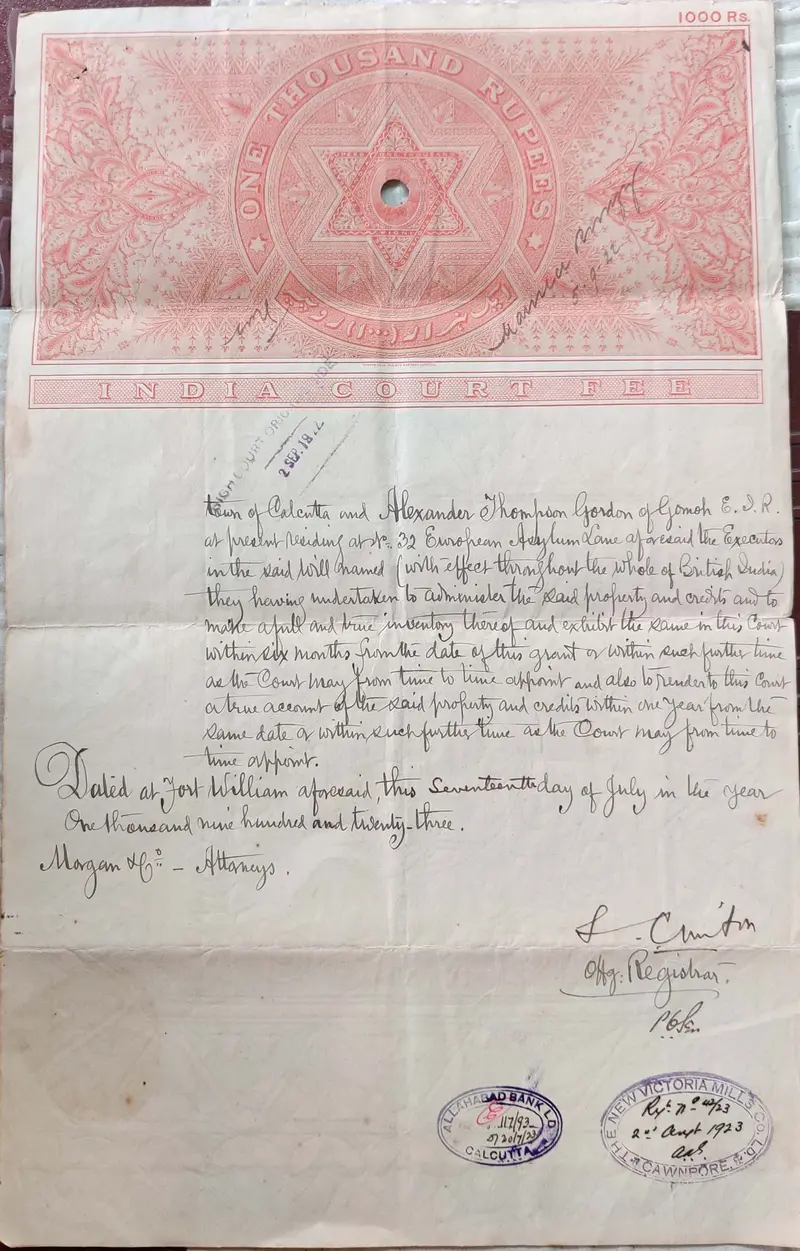 1000 Rs.
ONE THOUSAND RUPEES
RUPEES ONE THOUSAND
5.9.22
INDIA COURT FEE
HIGH COURT ORIGINAL SIDE
2 SEP. 18
town of Calcutta and Alexander Thompson Gordon of Gomoh E. I. R.
at present residing at No. 32 European Asylum Lane aforesaid the Executors
in the said Will named (with effect throughout the whole of British India)
they having undertaken to administer the said property and credits and to
make a full and true inventory thereof and exhibit the same in this Court
within six months from the date of this grant or within such further time
as the Court may from time to time appoint and also to render to this Court
a true account of the said property and credits within one year from the
same date or within such further time as the Court may from time to
time appoint.
Dated at Fort William aforesaid, this Seventeenth day of July in the year
One thousand nine hundred and twenty-three.
Morgan & Co. – Attorneys.
Offg: Registrar.
ALLAHABAD BANK LD.
117/93
20/7/23
CALCUTTA
THE NEW VICTORIA MILLS CO. LD.
2nd August 1923
CAWNPORE.